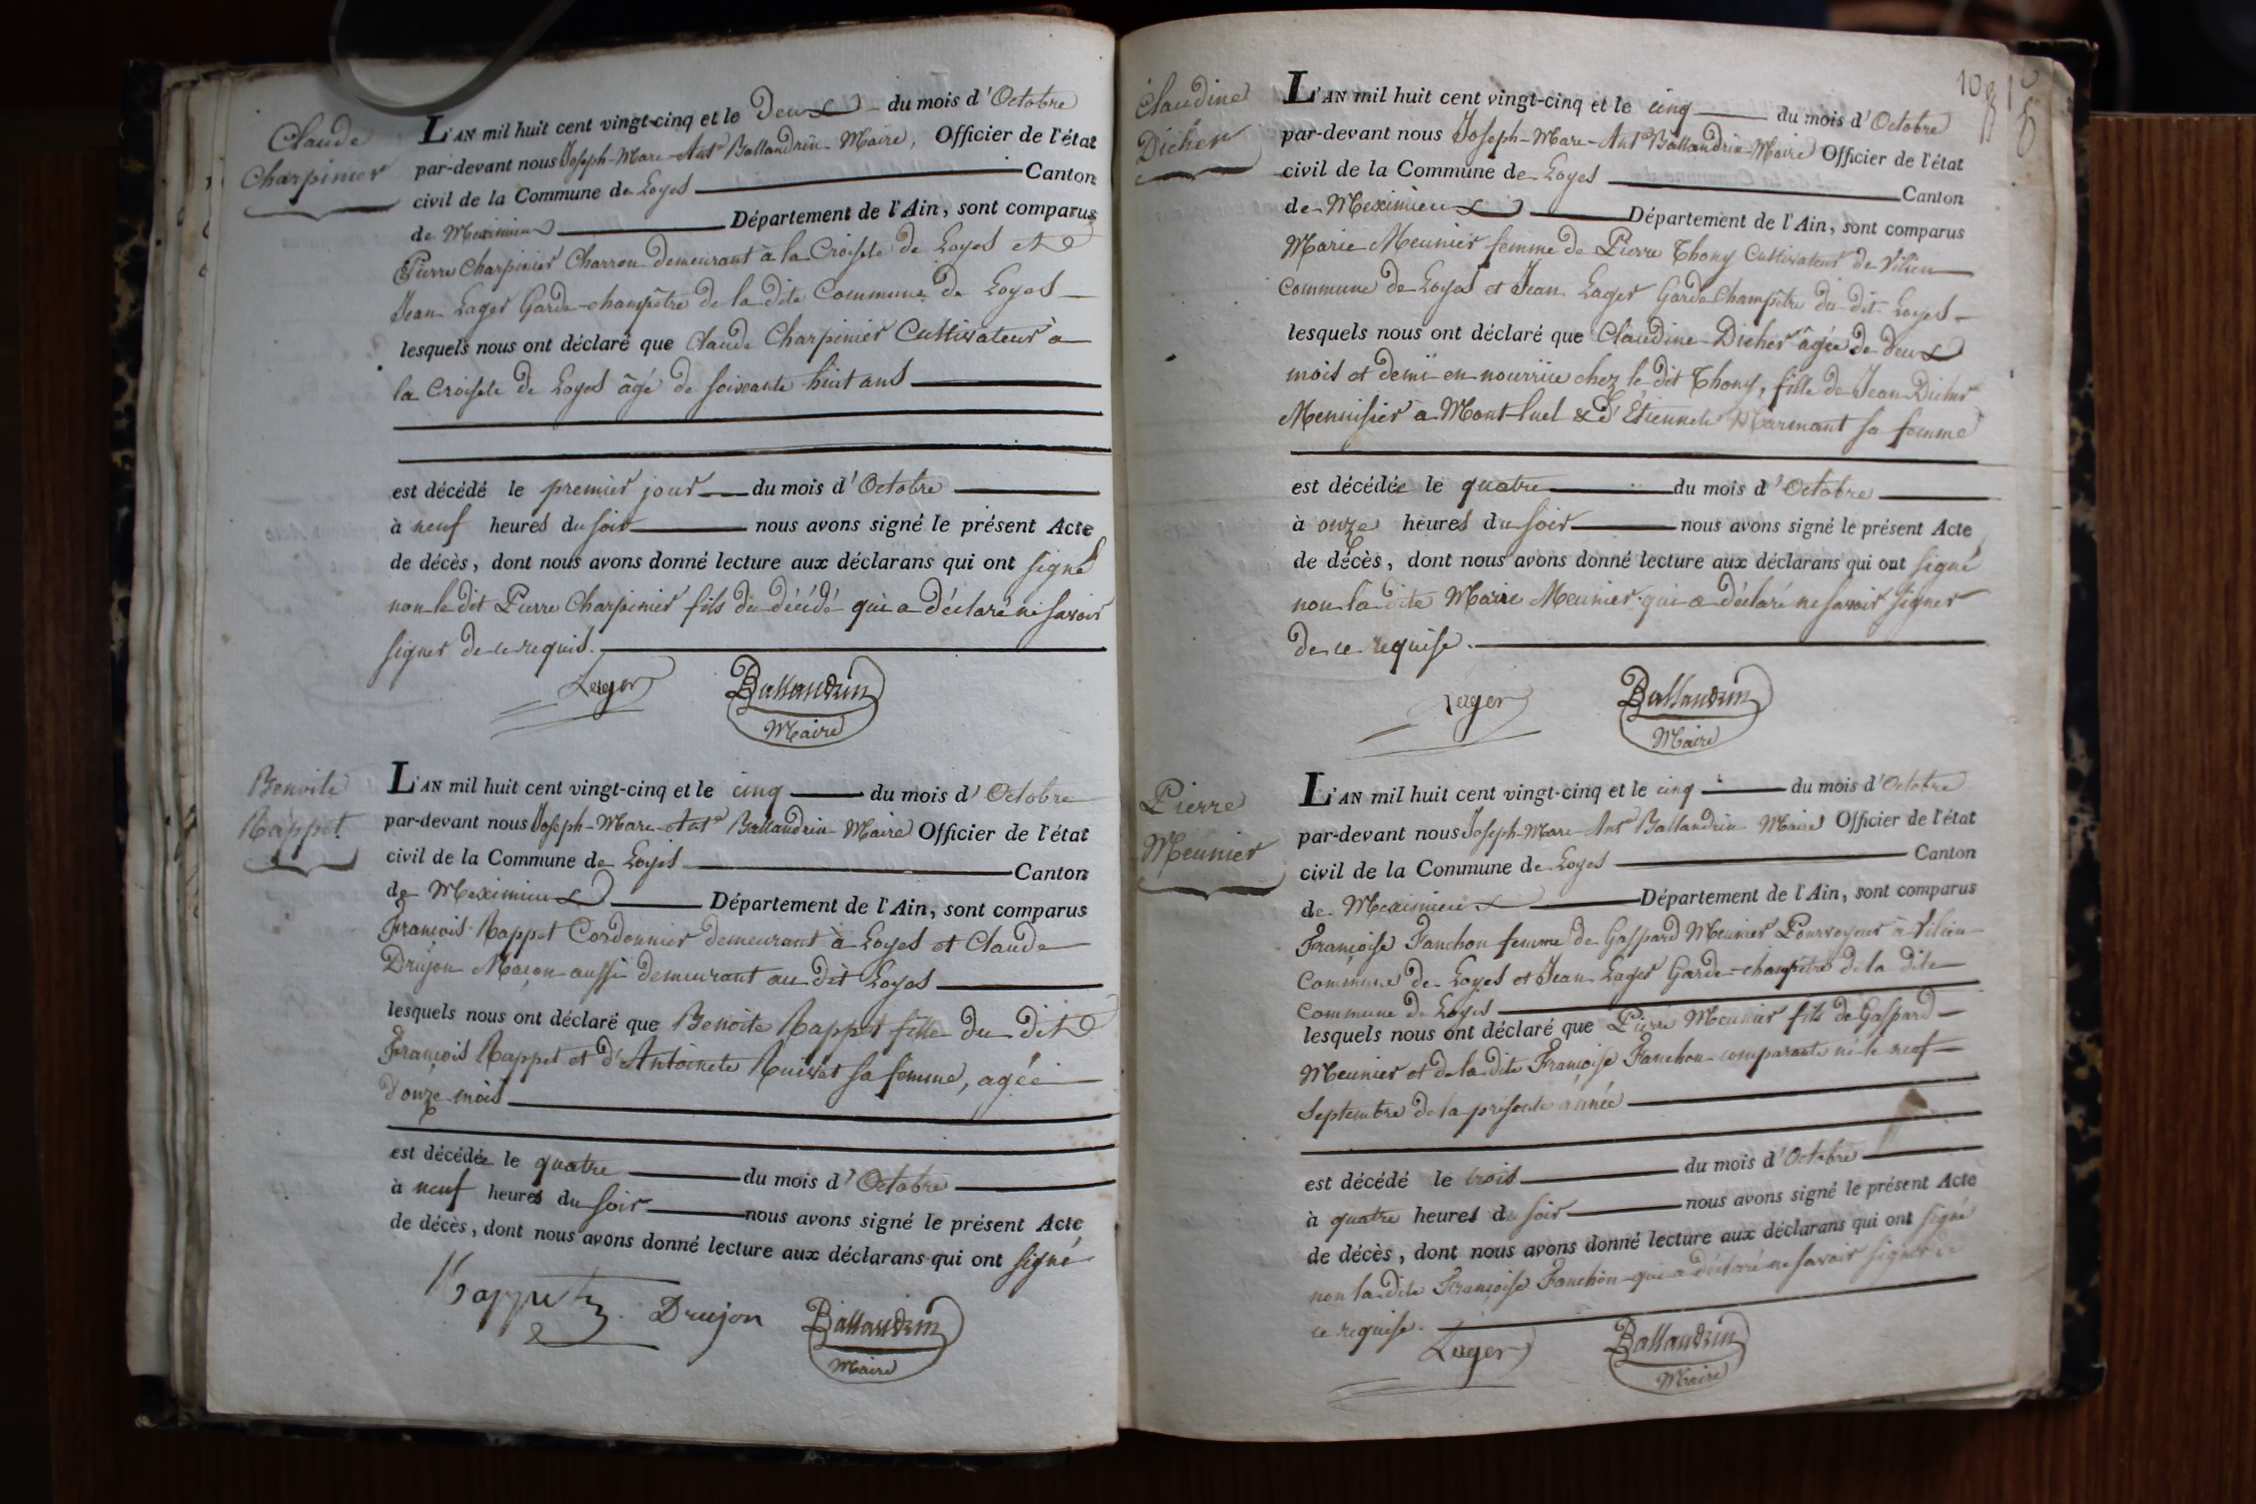 Claude
Charpinier
L'AN mil huit cent vingt-cinq et le Deux du mois d'Octobre
par-devant nous Joseph-Marc-Ant.e Ballandrin Maire, Officier de l'état
civil de la Commune de Loyes Canton
de Meximieux Département de l'Ain, sont comparus
Pierre Charpinier Charron demeurant à la Croisete de Loyes et
Jean Lager Garde-champêtre de la dite Commune de Loyes
lesquels nous ont déclaré que Claude Charpinier Cultivateur à
la Croisete de Loyes âgé de soixante huit ans
est décédé le premier jour du mois d'Octobre
à neuf heures du soir nous avons signé le présent Acte
de décès, dont nous avons donné lecture aux déclarans qui ont signé
non le dit Pierre Charpinier fils du décédé qui a déclaré ne savoir
signer de ce requis.
Lager Ballandrin
Maire
Benoite
Rappet
L'AN mil huit cent vingt-cinq et le cinq du mois d'Octobre
par-devant nous Joseph-Marc-Ant.e Ballandrin Maire Officier de l'état
civil de la Commune de Loyes Canton
de Meximieux Département de l'Ain, sont comparus
François Rappet Cordonnier demeurant à Loyes et Claude
Drujon Maçon aussi demeurant au dit Loyes
lesquels nous ont déclaré que Benoite Rappet fille du dit
François Rappet et d'Antoinete Ruivet sa femme, agée
d'onze mois
est décédée le quatre du mois d'Octobre
à neuf heures du soir nous avons signé le présent Acte
de décès, dont nous avons donné lecture aux déclarans qui ont signé
Rappet Drujon Ballandrin
Maire
10
Claudine
Dicher
L'AN mil huit cent vingt-cinq et le cinq du mois d'Octobre
par-devant nous Joseph-Marc-Ant.e Ballandrin Maire Officier de l'état
civil de la Commune de Loyes Canton
de Meximieux Département de l'Ain, sont comparus
Marie Meunier femme de Pierre Thony Cultivateur de Vilieu
Commune de Loyes et Jean Lager Garde Champêtre du dit Loyes
lesquels nous ont déclaré que Claudine Dicher âgée de deux
mois et demi en nourrice chez le dit Thony, fille de Jean Dicher
Menuisier a Mont-luel & d'Etiennete Marmant sa femme
est décédée le quatre du mois d'Octobre
à onze heures du soir nous avons signé le présent Acte
de décès, dont nous avons donné lecture aux déclarans qui ont signé
non la dite Marie Meunier qui a déclaré ne savoir signer
de ce requise.
Lager Ballandrin
Maire
Pierre
Meunier
L'AN mil huit cent vingt-cinq et le cinq du mois d'Octobre
par-devant nous Joseph-Marc-Ant.e Ballandrin Maire Officier de l'état
civil de la Commune de Loyes Canton
de Meximieux Département de l'Ain, sont comparus
Françoise Fanchon femme de Gaspard Meunier Pourvoyeur à Vilieu
Commune de Loyes et Jean Lager Garde-champêtre de la dite
Commune de Loyes
lesquels nous ont déclaré que Pierre Meunier fils de Gaspard
Meunier et de la dite Françoise Fanchon comparante né le neuf
Septembre de la présente année
est décédé le trois du mois d'Octobre
à quatre heures du soir nous avons signé le présent Acte
de décès, dont nous avons donné lecture aux déclarans qui ont signé
non la dite Françoise Fanchon qui a déclaré ne savoir signer de
ce requise.
Lager Ballandrin
Maire